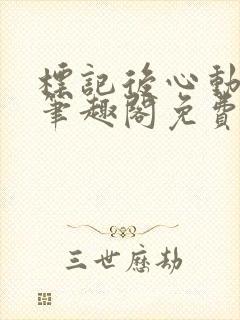 標記後心動
筆趣閣免費
三世歷劫